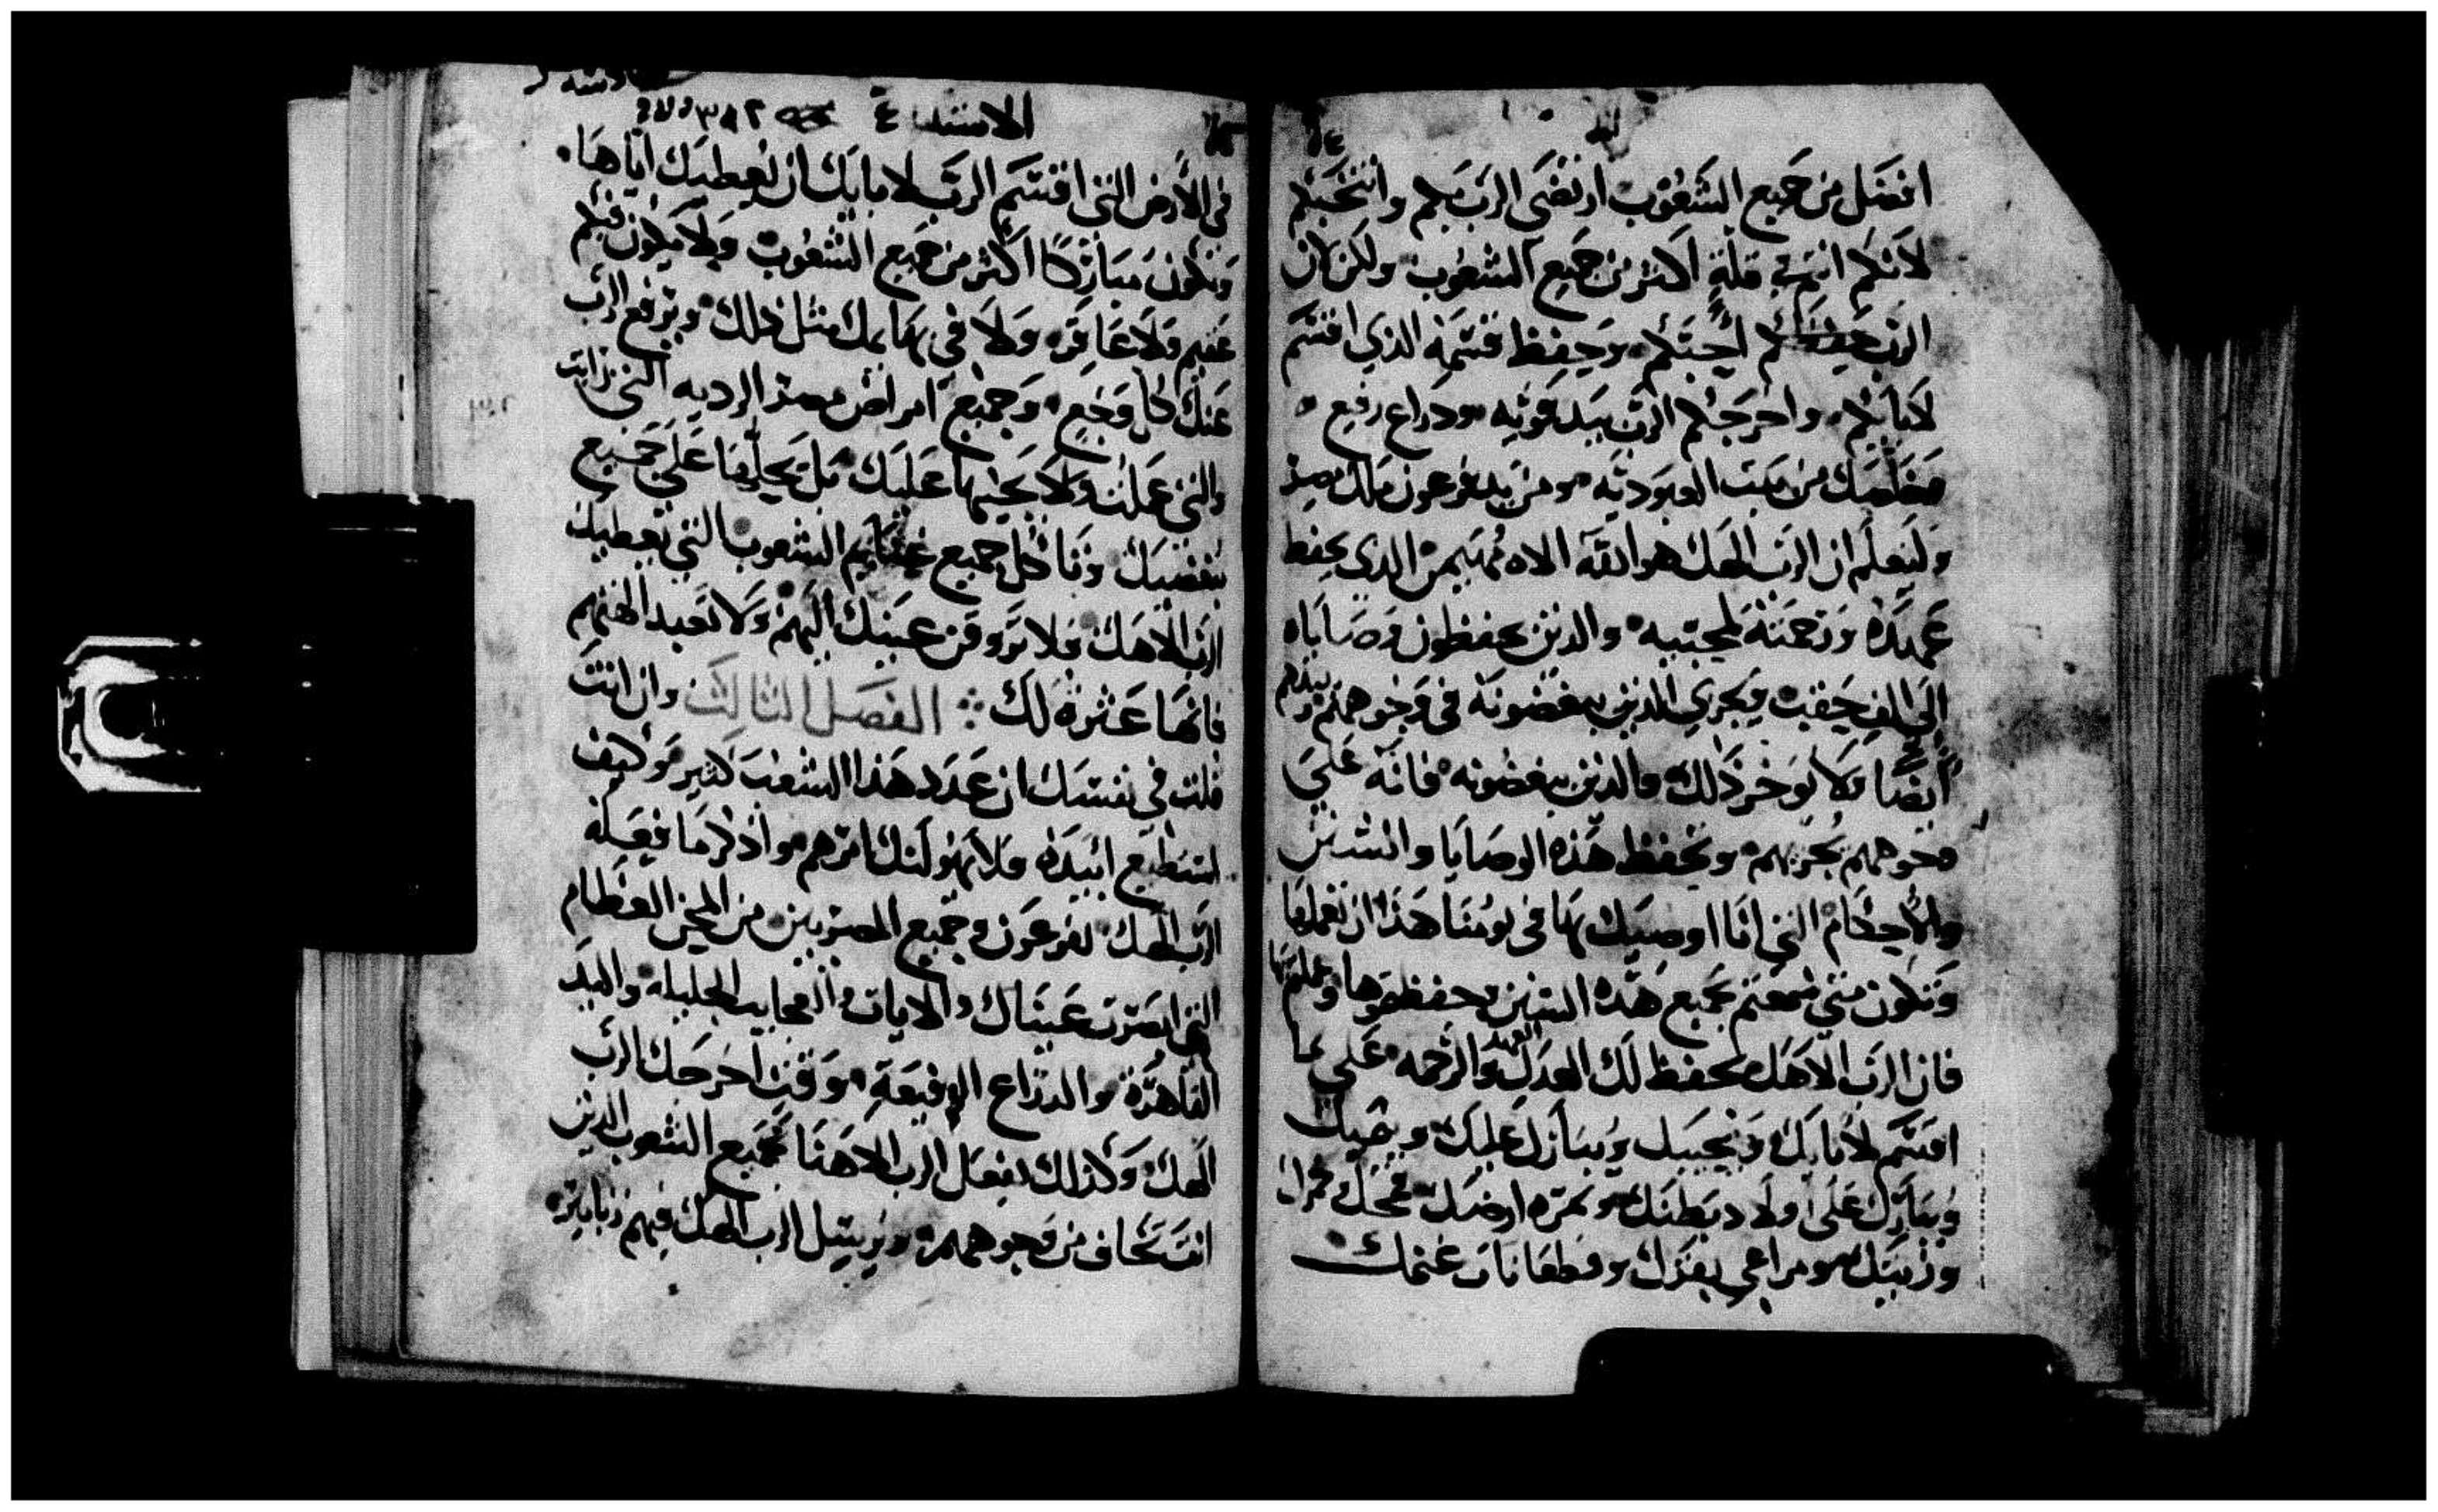 افضل من جميع الشعوب ارتضى الرب بكم وانتخبكم
لانكم انتم في قلة اكثر من جميع الشعوب ولكن ان
الرب احبكم وحفظ قسمه الذي اقسم
لابائكم واخرجكم الرب بيد قويه ودراع رفيع
مخلصك من بيت العبوديه ومن يد فرعون ملك مصر
ولتعلم ان الرب الهك هو الله الاه مهيمن الدي يحفظ
عهده ورحمته لمحبيه والدين يحفظون وصاياه
الى الف حقب ويجزي الذين يبغضونه في وجوههم
ايضا ولا يوخر ذلك والدين يبغضونه فانه على
وجوههم يجزيهم وتحفظ هذه الوصايا والسنن
والاحكام التي انا اوصيك بها في يومنا هذا ان تعملها
وتكون متي سمعتم جميع هده السنن وحفظتموها وعملتم بها
فان الرب الاهك يحفظ لك العهد والرحمه على ما
اقسم لابايك ويحبك ويبارك عليك
ويبارك على اولاد بطنك وثمره ارضك قمحك وخمرك
وزيتك ومراعي بقرك وقطعانات غنمك
الاستثنا
في الارض التي اقسم الرب لابايك ان يعطيك اياها
وتكون مباركا اكثر من جميع الشعوب ولا يكون فيكم
عقيم ولا عاقره ولا في بهايمك مثل ذلك ويرفع الرب
عنك كل وجع وجميع امراض مصر الرديه التي رايت
والتي علمت ولا يجيبها عليك بل يحلها على جميع
مبغضيك وتاكل جميع غنايم الشعوب التي يعطيك
الرب الاهك فلا تروف عينك اليهم ولا تعبد الهتهم
فانها عثرة لك الفصل الثالث وان انت
قلت في نفسك ان عدد هذا الشعب كثير وكيف
استطيع ابيده فلا يهولنك امرهم واذكر ما فعله
الرب الهك لفرعون وجميع المصريين من المحن العظام
التي ابصرت عيناك والايات والعجايب الجليله واليد
القاهره والدراع الرفيعة وقت اخرجك الرب
الهك وكذلك يفعل الرب الاهنا بجميع الشعوب الدين
انت تخاف من وجوههم ويرسل الرب الهك فيهم زنابير